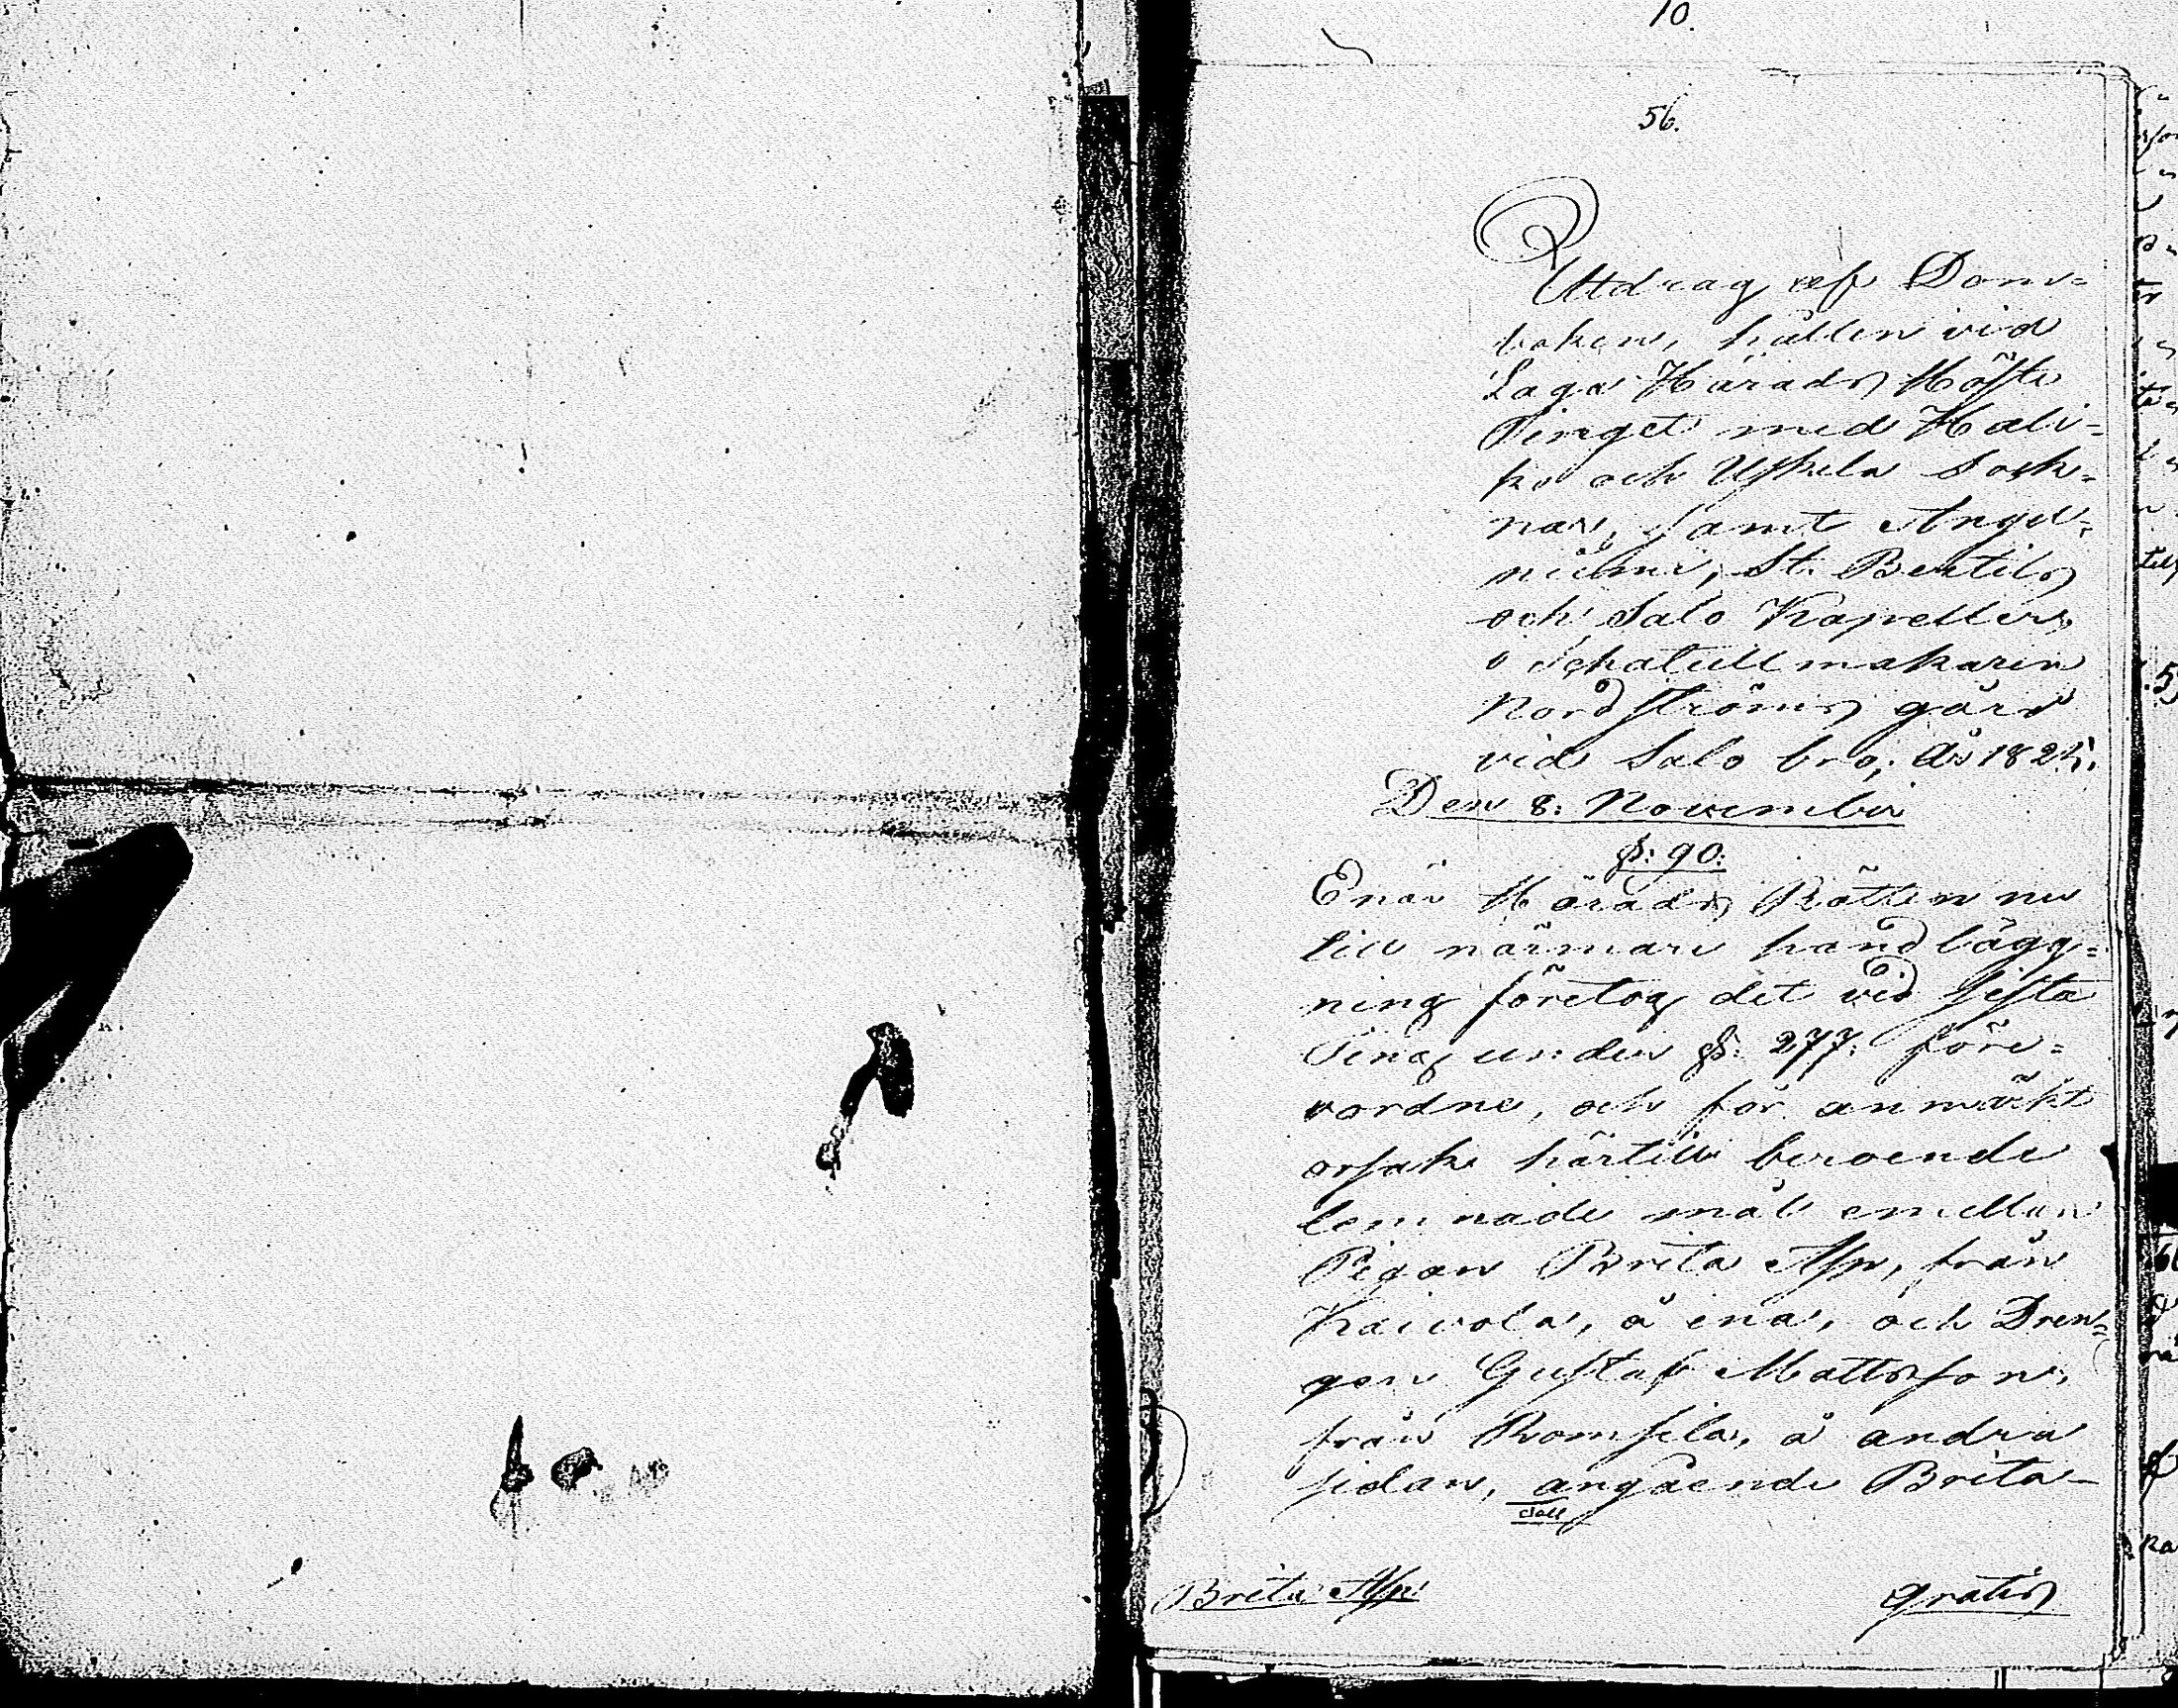 10.
56.
Utdrag af Dom-
boken, hållen vid
Laga Härads Höste
Tinget med Hali-
ko och Uskela Sock-
nar, samt Ange-
niemi, St. Bertils
och Salo Kapeller,
i Schatullmakaren
Nordströms gård
vid Salo bro, år 182
Den 8. November
§: 90:
Enär Härads Rätten nu
till närmare handlägg-
ning företog det vid sista
Ting under §: 277: före-
vordne, och för anmärkt
orsak härtill beroende
lemnade mål emellan
Pigan Brita Asp, från
Kaivola, å ena, och Dren-
gen Gustaf Mattsson,
från Romsila, å andra
sidan, angående Brita
Brita Asp
gratis